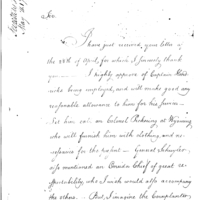 Sir.
I have just received, your letter of
the 28th of April, for which I sincerely thank
you — I highly approve of Captain
who being employed, and will make good any
reasonable allowance to him for his services —
Let him call on Colonel Pickering at Wyoming
who will furnish him with clothing, and
for the — General Schuyler
mentioned an Oneida Chief of great
whom I wish would also accompany
the others — But, I imagine the Cornplanter,